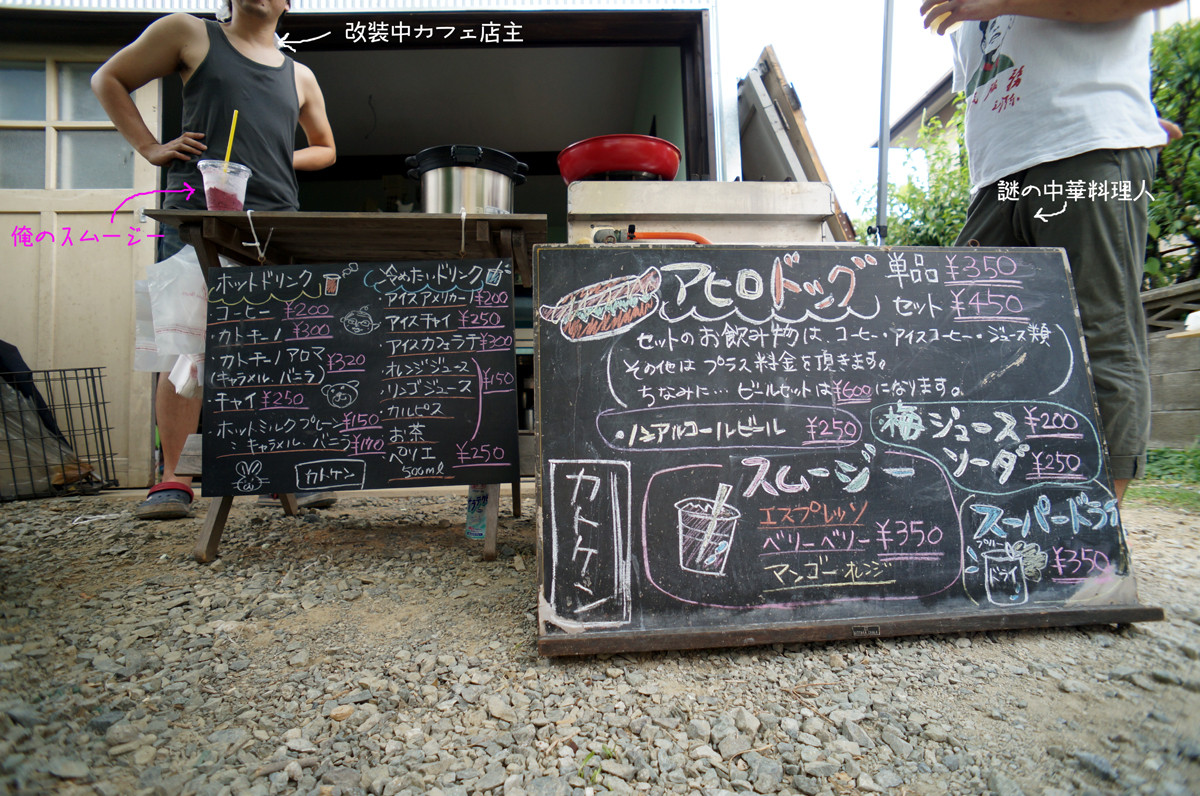 改装中カフェ店主
俺のスムージー
謎の中華料理人
ホットドリンク
コーヒー ¥200
カトチーノ ¥300
カトチーノ アロマ ¥320
(キャラメル・バニラ)
チャイ ¥250
ホットミルク プレーン ¥150
:キャラメル・バニラ ¥170
カトケン
冷めたいドリンク
・アイスアメリカーノ ¥200
・アイスチャイ ¥250
・アイスカフェラテ ¥300
・オレンジジュース
・リンゴジュース ¥150
・カルピス
・お茶
・ペリエ ¥250
500ml
アヒロドッグ 単品 ¥350
セット ¥450
セットのお飲み物は、コーヒー・アイスコーヒー・ジュース類
その他は プラス料金を頂きます。
ちなみに… ビールセットは¥600になります。
・ノンアルコールビール ¥250
梅ジュース ¥200
ソーダ ¥250
カトケン
スムージー
エスプレッソ
ベリーベリー ¥350
マンゴー・オレンジ
スーパードライ
ドライ
¥350